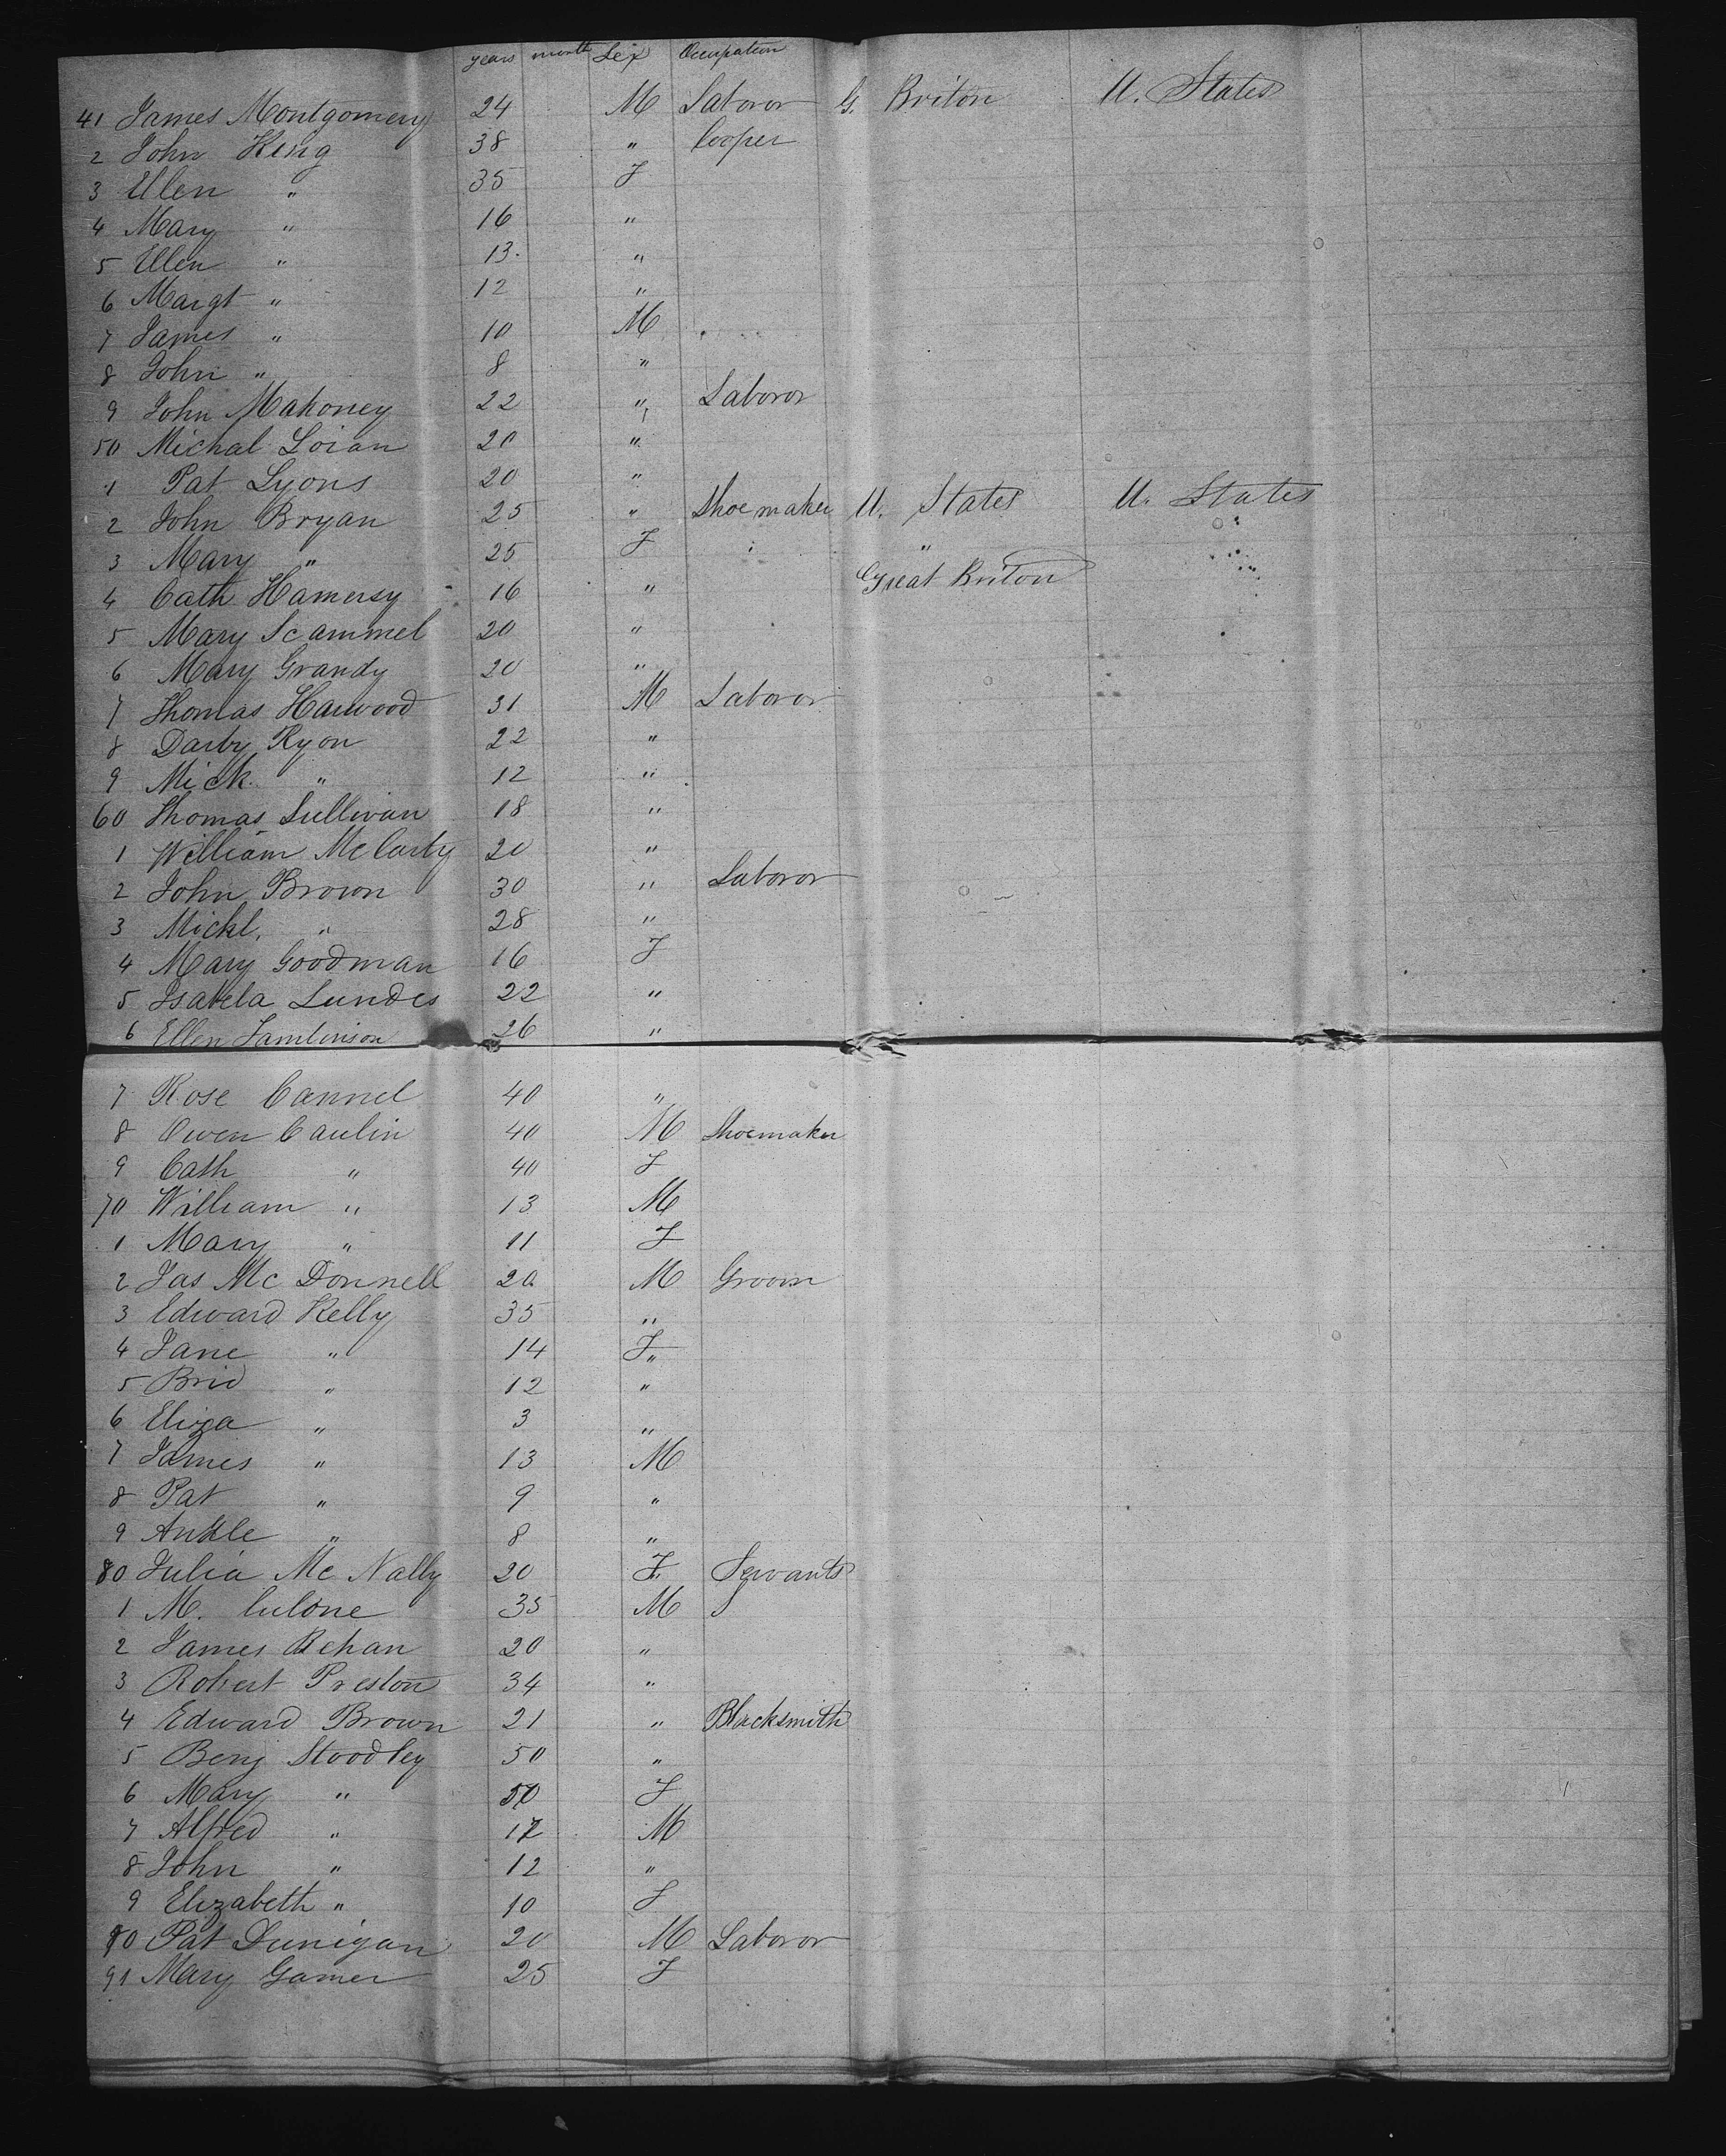 years month Sex Occupation
41 James Montgomery 24 M Laboror G. Briton U. States
2 John King 38 " Cooper
3 Ellen " 35 F
4 Mary " 16 "
5 Ellen " 13 "
6 Margt " 12 "
7 James " 10 M
8 John " 8 "
9 John Mahoney 22 " Laboror
50 Michal Loian 20 "
1 Pat Lyons 20 "
2 John Bryan 25 " Shoemaker U. States U. States
3 Mary " 25 F "
4 Cath Hamersy 16 " Great Briton
5 Mary Scammel 20 "
6 Mary Grandy 20 "
7 Thomas Harwood 31 M Laboror
8 Darby Ryon 22 "
9 Mick " 12 "
60 Thomas Sullivan 18 "
1 William McCarty 20 "
2 John Brown 30 " Laboror
3 Mickl. " 28 "
4 Mary Goodman 16 F
5 Isabela Lundes 22 "
6 Ellen Tamlinson 26 "
7 Rose Cannel 40 "
8 Owen Caulin 40 M Shoemaker
9 Cath " 40 F
70 William " 13 M
1 Mary " 11 F
2 Jas Mc Donnell 20 M Groom
3 Edward Kelly 35 "
4 Jane " 14 F "
5 Brid " 12 "
6 Eliza " 3 "
7 James " 13 M
8 Pat " 9 "
9 " 8 "
80 Julia Mc Nally 20 F Servants
1 M. 35 M
2 James Rehan 20 "
3 Robert Preston 34 "
4 Edward Brown 21 " Blacksmith
5 Benj Stoodley 50 "
6 Mary " 50 F
7 Alfred " 17 M
8 John " 12 "
9 Elizabeth " 10 F
90 Pat Dunigan 20 M Laboror
91 Mary Garner 25 F